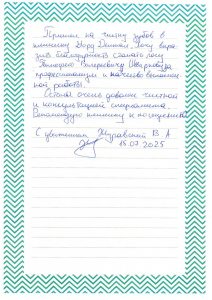 Пришла на чистку зубов в
клинику Норд Дентал. Хочу выра-
зить благодарность стоматологу
за профессионализм и качество выполнен-
ной работы.
Осталась очень довольна чисткой
и консультацией специалиста.
Рекомендую клинику к посещению
С уважением Журавская В А
15.07.2025